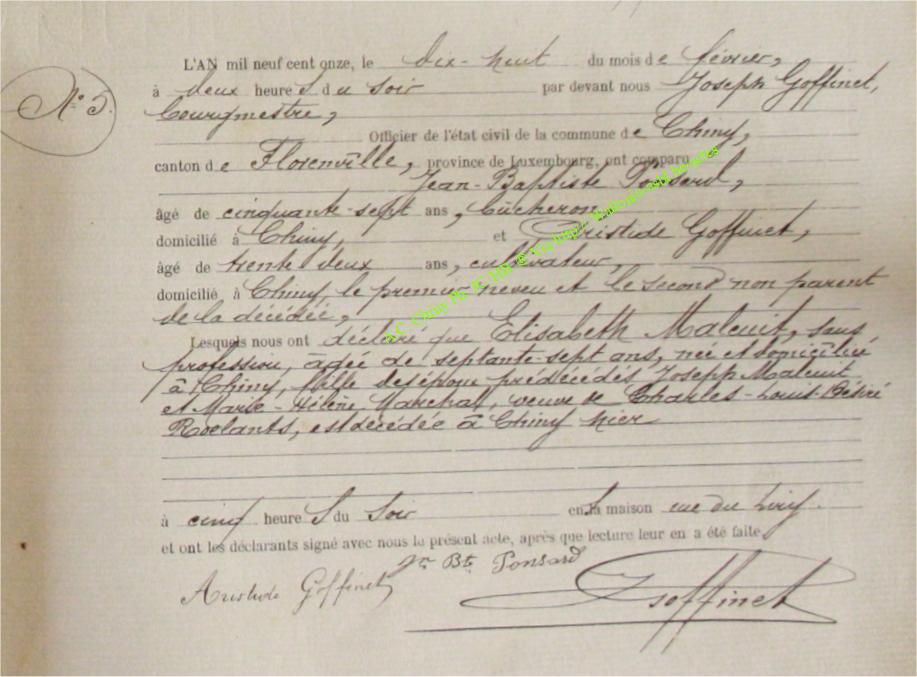 L'AN mil neuf cent onze, le dix-huit du mois de février,
N° 5. à deux heures du soir par devant nous Joseph Goffinet,
bourgmestre,
Officier de l'état civil de la commune de Chiny,
canton de Florenville, province de Luxembourg, ont comparu
Jean-Baptiste Ponsard,
âgé de cinquante-sept ans, bûcheron,
domicilié à Chiny, et Aristide Goffinet,
âgé de trente deux ans, cultivateur,
domicilié à Chiny le premier neveu et le second non parent
de la décédée,
Lesquels nous ont déclaré que Elisabeth Maleuit, sans
profession, âgée de septante-sept ans, née et domiciliée
à Chiny, fille des époux prédécédés Joseph Maleuit
et Marie-Hélène Marchal, veuve de Charles-Louis-Désiré
Roelants, est décédée à Chiny hier
à cinq heures du soir en sa maison rue du
et ont les déclarants signé avec nous le présent acte, après que lecture leur en a été faite.
Jn Bte Ponsard
Aristide Goffinet J Goffinet